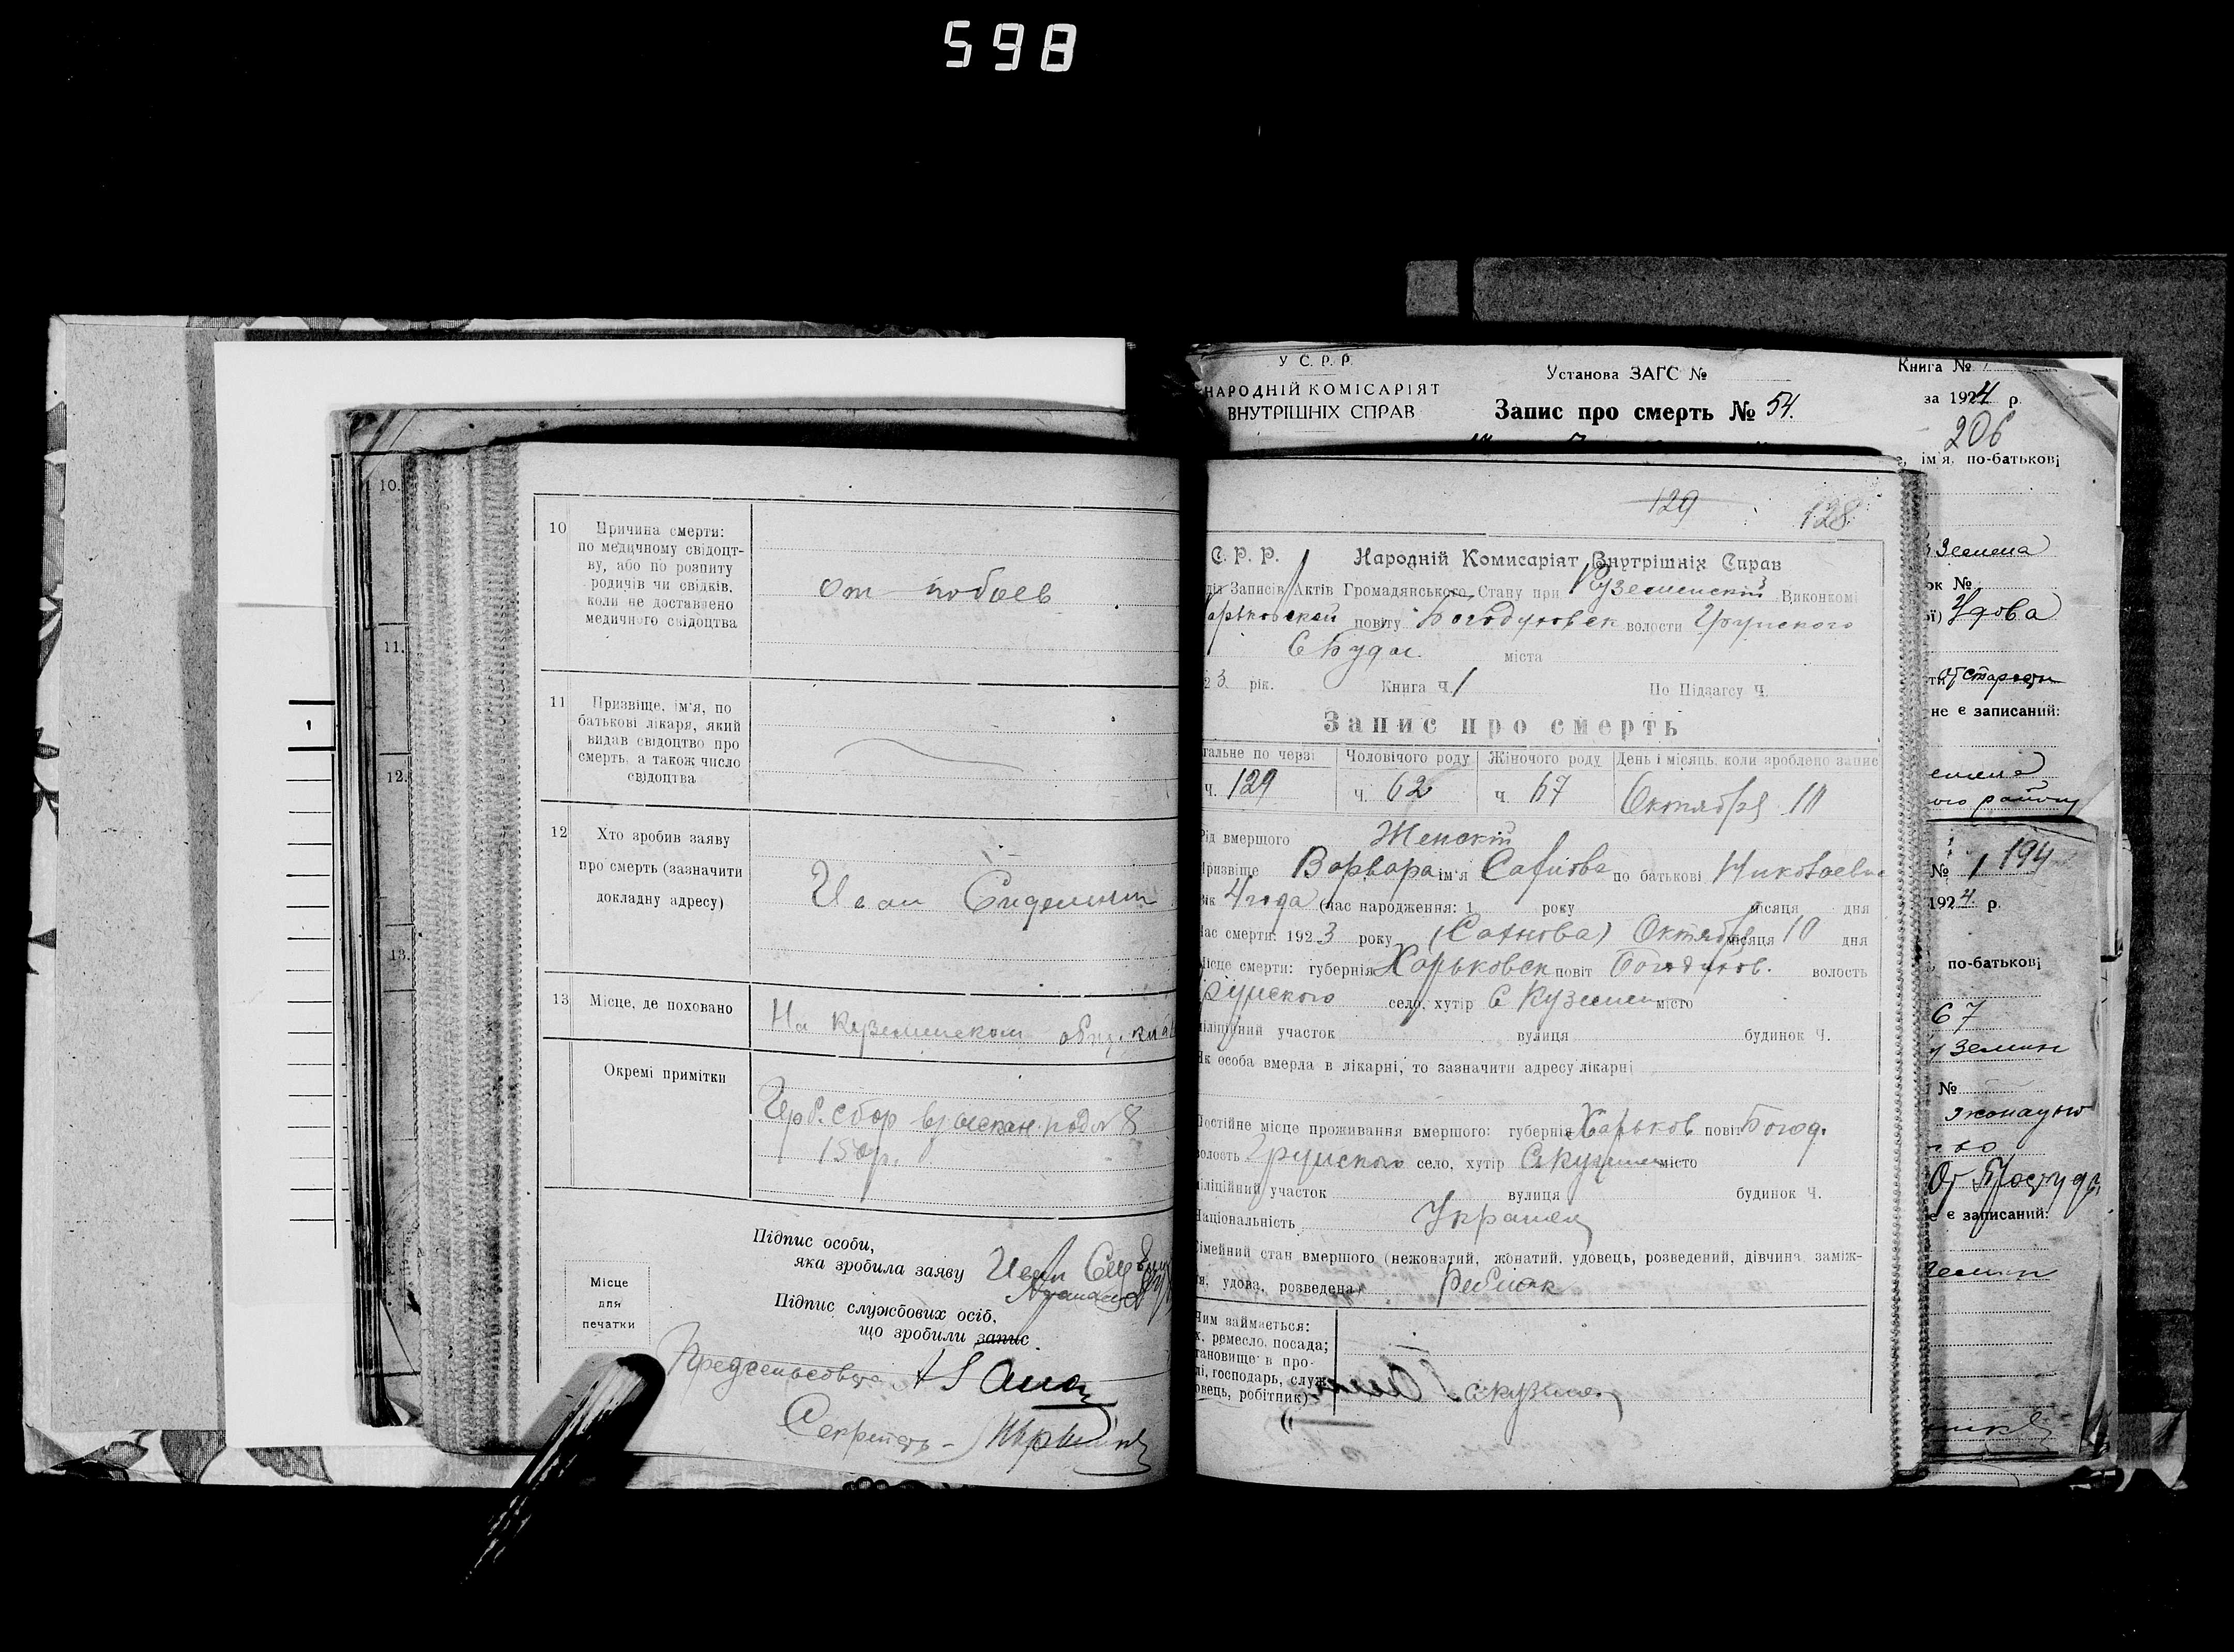 598
10.
11.
12.
13.
1
10 Причина смерти:
по медичному свідоцт-
ву, або по розпиту
родичів чи свідків,
коли не доставлено
медичного свідоцтва
от побоев
11 Призвіще, ім'я, по
батькові лікаря, який
видав свідоцтво про
смерть, а також число
свідоцтва
12 Хто зробив заяву
про смерть (зазначити
докладну адресу)
Иван
13 Місце, де поховано
На Куземинском общ.
Окремі примітки
Герб. сбор взыскан. под № 8
150 р.
Підпис особи,
яка зробила заяву Иван
Підпис службових осіб,
що зробили запис.
Місце
для
печатки
Предсельсовета
Секретарь -
У С. Р. Р.
НАРОДНІЙ КОМІСАРІЯТ
ВНУТРІШНІХ СПРАВ
Установа ЗАГС №
Запис про смерть № 54.
Книга №
за 1924 р.
206
129
128
С. Р. Р. Народній Комисаріят Внутрішніх Справ
Записів Актів Громадянського Стану при Куземенскій Виконкомі
повіту Богодуховск волости Грунского
С Буды міста
23 рік. Книга Ч. 1 По Підзагсу Ч.
Запис про смерть
гальне по черзі Чоловічого роду Жіночого роду День і місяць, коли зроблено запис
ч. 129 ч. 62 ч. 67 Октября 10
Рід вмершого Женскій
Призвіще Варвара ім'я по батькові Николаевна
Вік 4 года (час народження: 1 року місяця дня
Час смерти: 1923 року (Сахнова) Октября місяця 10 дня
Місце смерти: губернія Харьковск повіт Богодухов. волость
Грунского село, хутір С Куземен місто
міліційний участок вулиця будинок Ч.
Як особа вмерла в лікарні, то зазначити адресу лікарні
Постійне місце проживання вмершого: губернія Харьков повіт Богод.
волость Грунского село, хутір місто
міліційний участок вулиця будинок Ч.
Національність Украинец
Сімейний стан вмершого (нежонатий, жонатий, удовець, розведений, дівчина, заміж-
ня, удова, розведена) Ребенок
Чим займається:
х, ремесло, посада;
тановище в про-
лі, господарь, служ-
овець, робітник)
е, ім'я, по-батькові
ок №
Удова
От старости
не є записаний:
ого району
№ 1 194
1924 р.
по-батькові
67
№
От Простуды
є записаний: